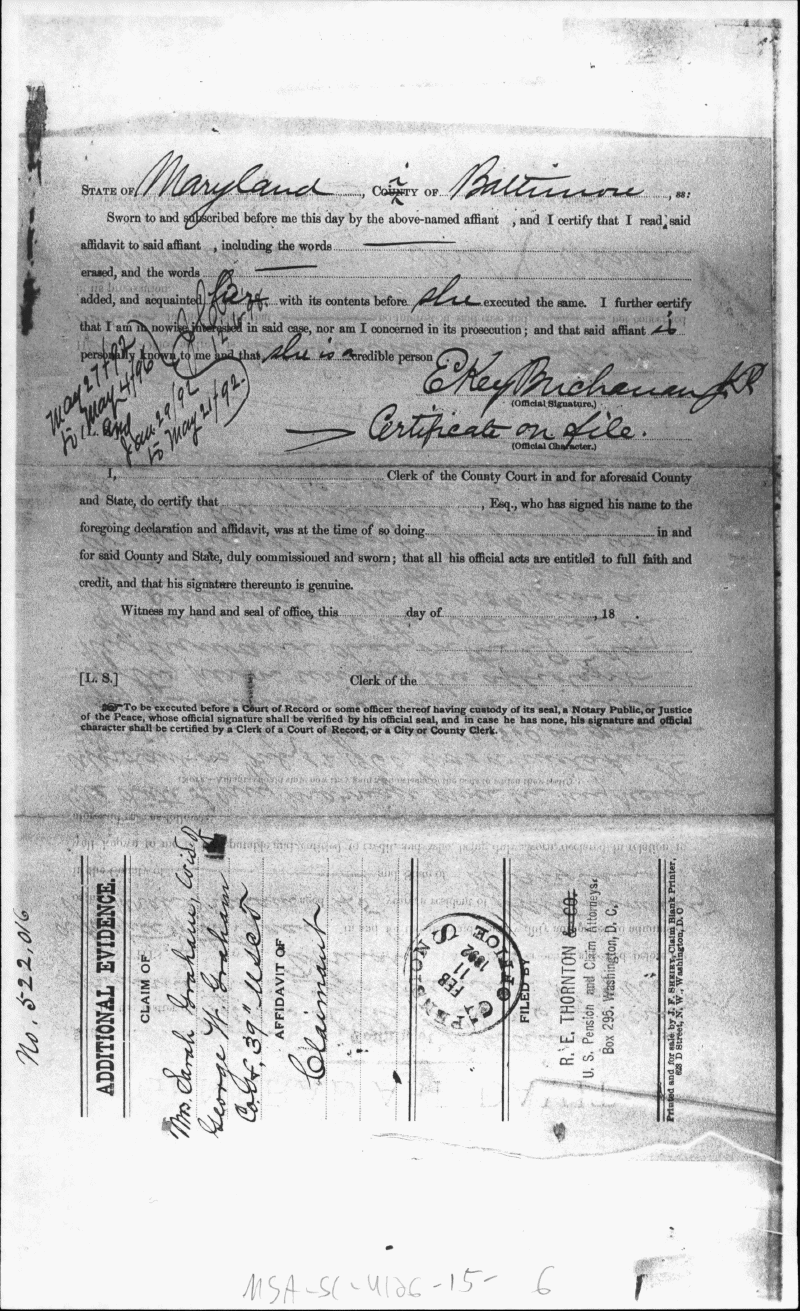 STATE OF Maryland, City OF Baltimore, ss:
Sworn to and subscribed before me this day by the above-named affiant , and I certify that I read said
affidavit to said affiant , including the words
erased, and the words
added, and acquainted her with its contents before she executed the same. I further certify
that I am in nowise interested in said case, nor am I concerned in its prosecution; and that said affiant is
personally known to me and that she is a credible person
May 27/92
to May 4/96
and
Jan 29/92
to May 21/92.
E Key Buchanan J.P.
(Official Signature.)
Certificate on file.
(Official Character.)
I, Clerk of the County Court in and for aforesaid County
and State, do certify that , Esq., who has signed his name to the
foregoing declaration and affidavit, was at the time of so doing in and
for said County and State, duly commissioned and sworn; that all his official acts are entitled to full faith and
credit, and that his signature thereunto is genuine.
Witness my hand and seal of office, this day of , 18 .
[L. S.] Clerk of the
To be executed before a Court of Record or some officer thereof having custody of its seal, a Notary Public, or Justice
of the Peace, whose official signature shall be verified by his official seal, and in case he has none, his signature and official
character shall be certified by a Clerk of a Court of Record, or a City or County Clerk.
No. 522,016
ADDITIONAL EVIDENCE.
CLAIM OF
Mrs. Sarah Graham, Wid of
George W. Graham
Co. 39" USCT
AFFIDAVIT OF
Claimant
PENSION OFFICE
FEB
11
1892
FILED BY
R. E. THORNTON & CO.
U. S. Pension and Claim Attorneys.
Box 295, Washington, D. C.
Printed and for sale by J. F. SHEIRY, Claim Blank Printer,
623 D Street, N. W., Washington, D. C
MSA-SC-4126-15- 6